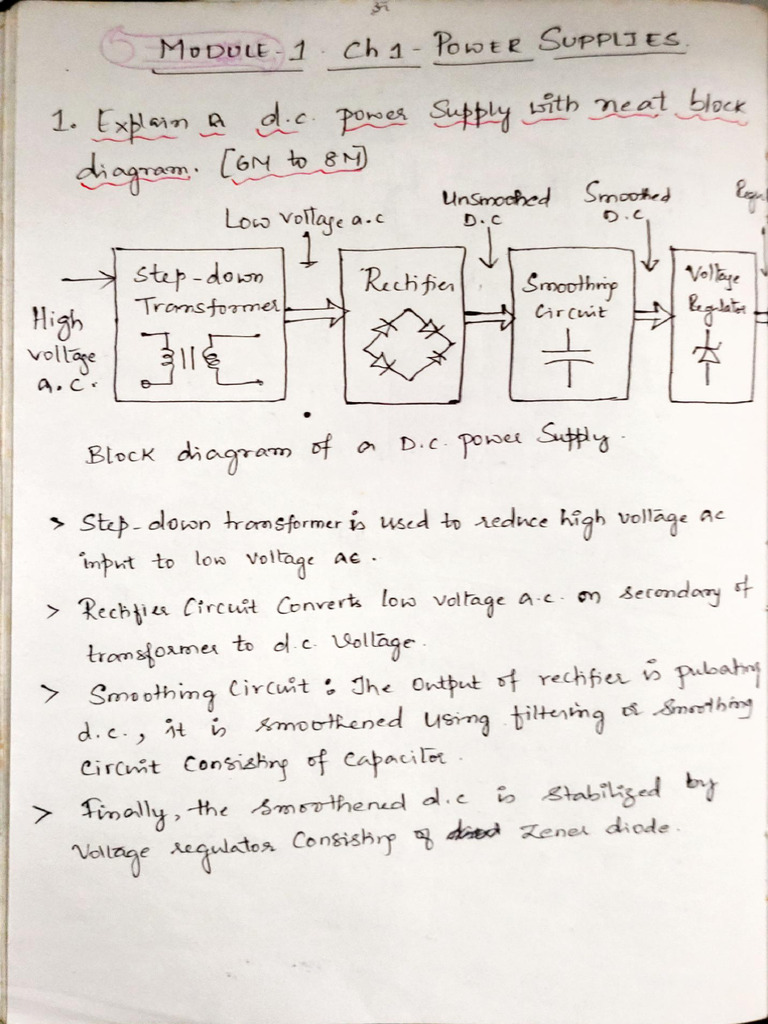 MODULE-1. Ch 1 - POWER SUPPLIES.
1. Explain a d.c. power supply with neat block
diagram. [6M to 8M]
Low voltage a.c
Unsmoothed
D.C
Smoothed
D.C
High
voltage
a.c.
Step-down
Transformer
Rectifier
Smoothing
Circuit
Voltage
Regulator
Block diagram of a D.C. power Supply.
> Step-down transformer is used to reduce high voltage ac
input to low voltage ac.
> Rectifier Circuit Converts low voltage a.c. on secondary of
transformer to d.c. Voltage.
> Smoothing Circuit : The output of rectifier is pulsating
d.c., it is smoothened using filtering or smoothing
circuit consisting of capacitor.
> Finally, the smoothened d.c is stabilized by
Voltage regulator Consisting of Zener diode.